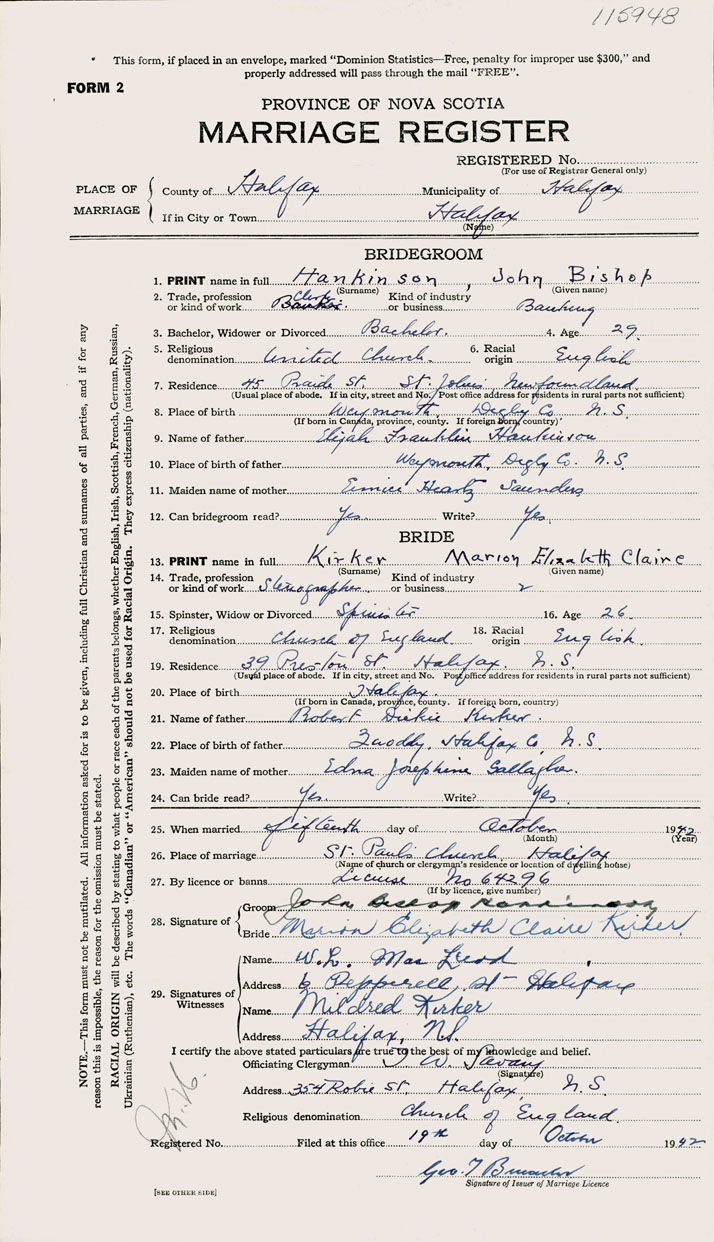 115948
This form, if placed in an envelope, marked "Dominion Statistics—Free, penalty for improper use $300," and
properly addressed will pass through the mail "FREE".
FORM 2
PROVINCE OF NOVA SCOTIA
MARRIAGE REGISTER
REGISTERED No.
(For use of Registrar General only)
PLACE OF MARRIAGE
County of Halifax Municipality of Halifax
If in City or Town Halifax
(Name)
BRIDEGROOM
1. PRINT name in full Hankinson, John Bishop
(Surname) (Given name)
2. Trade, profession or kind of work Clerk Kind of industry or business Banking
3. Bachelor, Widower or Divorced Bachelor. 4. Age 29
5. Religious denomination United Church. 6. Racial origin English
7. Residence 45 St. St. John's, Newfoundland
(Usual place of abode. If in city, street and No. Post office address for residents in rural parts not sufficient)
8. Place of birth Weymouth, Digby Co. N.S.
(If born in Canada, province, county. If foreign born, country)
9. Name of father Elijah Franklin Hankinson
10. Place of birth of father Weymouth, Digby Co. N.S.
11. Maiden name of mother Eunice Heartz Saunders
12. Can bridegroom read? Yes. Write? Yes.
BRIDE
13. PRINT name in full Kirker Marion Elizabeth Claire
(Surname) (Given name)
14. Trade, profession or kind of work Stenographer Kind of industry or business
15. Spinster, Widow or Divorced Spinster 16. Age 26.
17. Religious denomination Church of England 18. Racial origin English.
19. Residence 39 Preston St. Halifax. N.S.
(Usual place of abode. If in city, street and No. Post office address for residents in rural parts not sufficient)
20. Place of birth Halifax.
(If born in Canada, province, county. If foreign born, country)
21. Name of father Robert Dickie Kirker.
22. Place of birth of father Quoddy, Halifax Co, N.S.
23. Maiden name of mother Edna Josephine Gallagher.
24. Can bride read? Yes. Write? Yes.
25. When married fifteenth day of October 1942
(Month) (Year)
26. Place of marriage St. Paul's Church, Halifax
(Name of church or clergyman's residence or location of dwelling house)
27. By licence or banns License No 64296
(If by licence, give number)
28. Signature of
Groom John Bishop Hankinson
Bride Marion Elizabeth Claire Kirker
29. Signatures of Witnesses
Name W.L. MacLeod
Address 6 Pepperell St Halifax
Name Mildred Kirker
Address Halifax, N.S.
I certify the above stated particulars are true to the best of my knowledge and belief.
Officiating Clergyman T. W. Savary
(Signature)
Address 354 Robie St. Halifax, N.S.
Religious denomination Church of England.
Registered No. Filed at this office 19th day of October 1942
Geo. T
Signature of Issuer of Marriage Licence
[SEE OTHER SIDE]
NOTE.—This form must not be mutilated. All information asked for is to be given, including full Christian and surnames of all parties, and if for any
reason this is impossible, the reason for the omission must be stated.
RACIAL ORIGIN will be described by stating to what people or race each of the parents belongs, whether English, Irish, Scottish, French, German, Russian,
Ukrainian (Ruthenian), etc. The words "Canadian" or "American" should not be used for Racial Origin. They express citizenship (nationality).